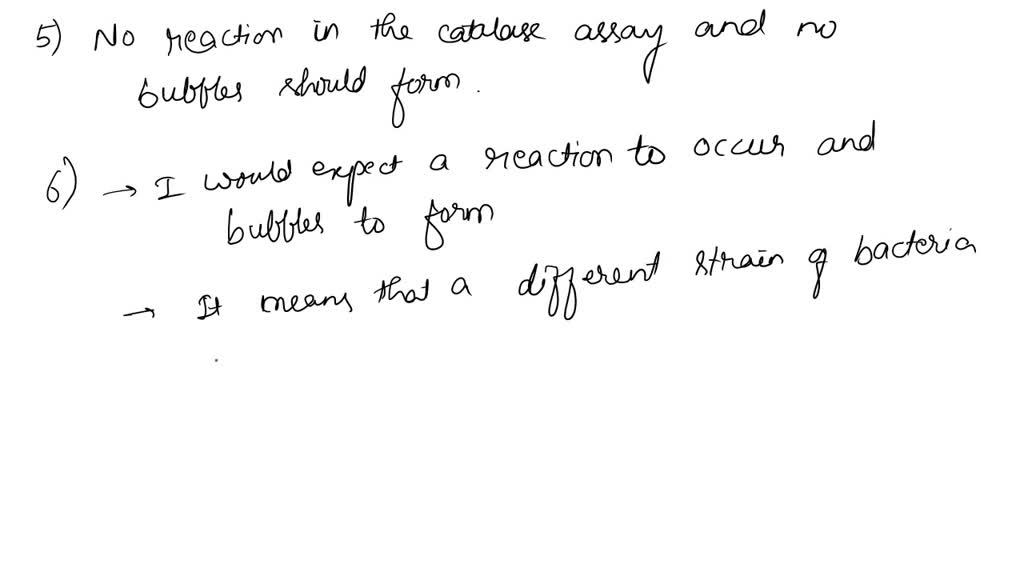 5) No reaction in the catalase assay and no
bubbles should form.
6) → I would expect a reaction to occur and
bubbles to form
→ It means that a different strain of bacteria